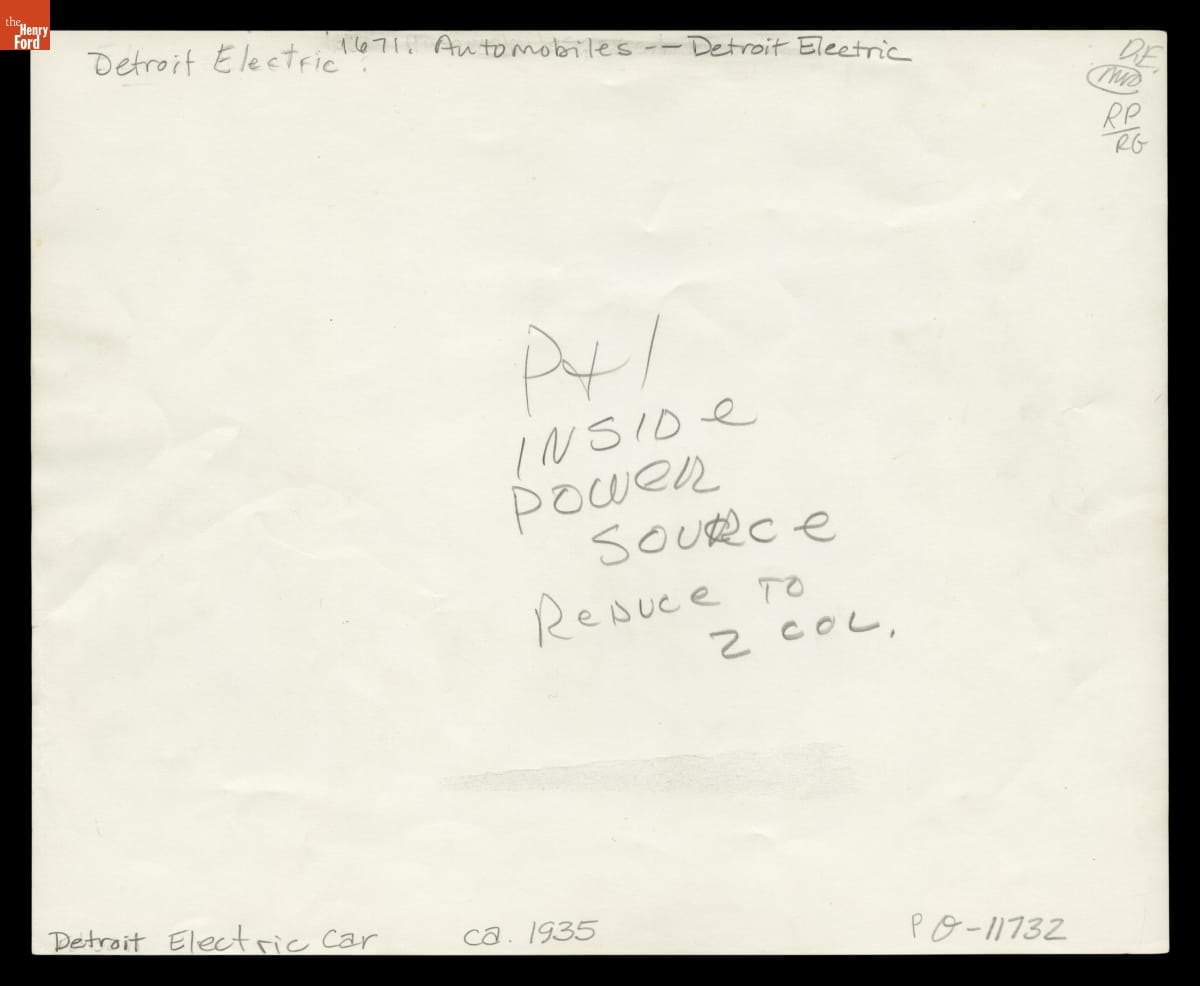 the
Henry
Ford
Detroit Electric.
1671. Automobiles -- Detroit Electric
D.E.
RP
RG
Pt 1
INSIDe
POWeR
SOURCe
ReDUCe TO
2 COL.
Detroit Electric Car ca. 1935 P O-11732